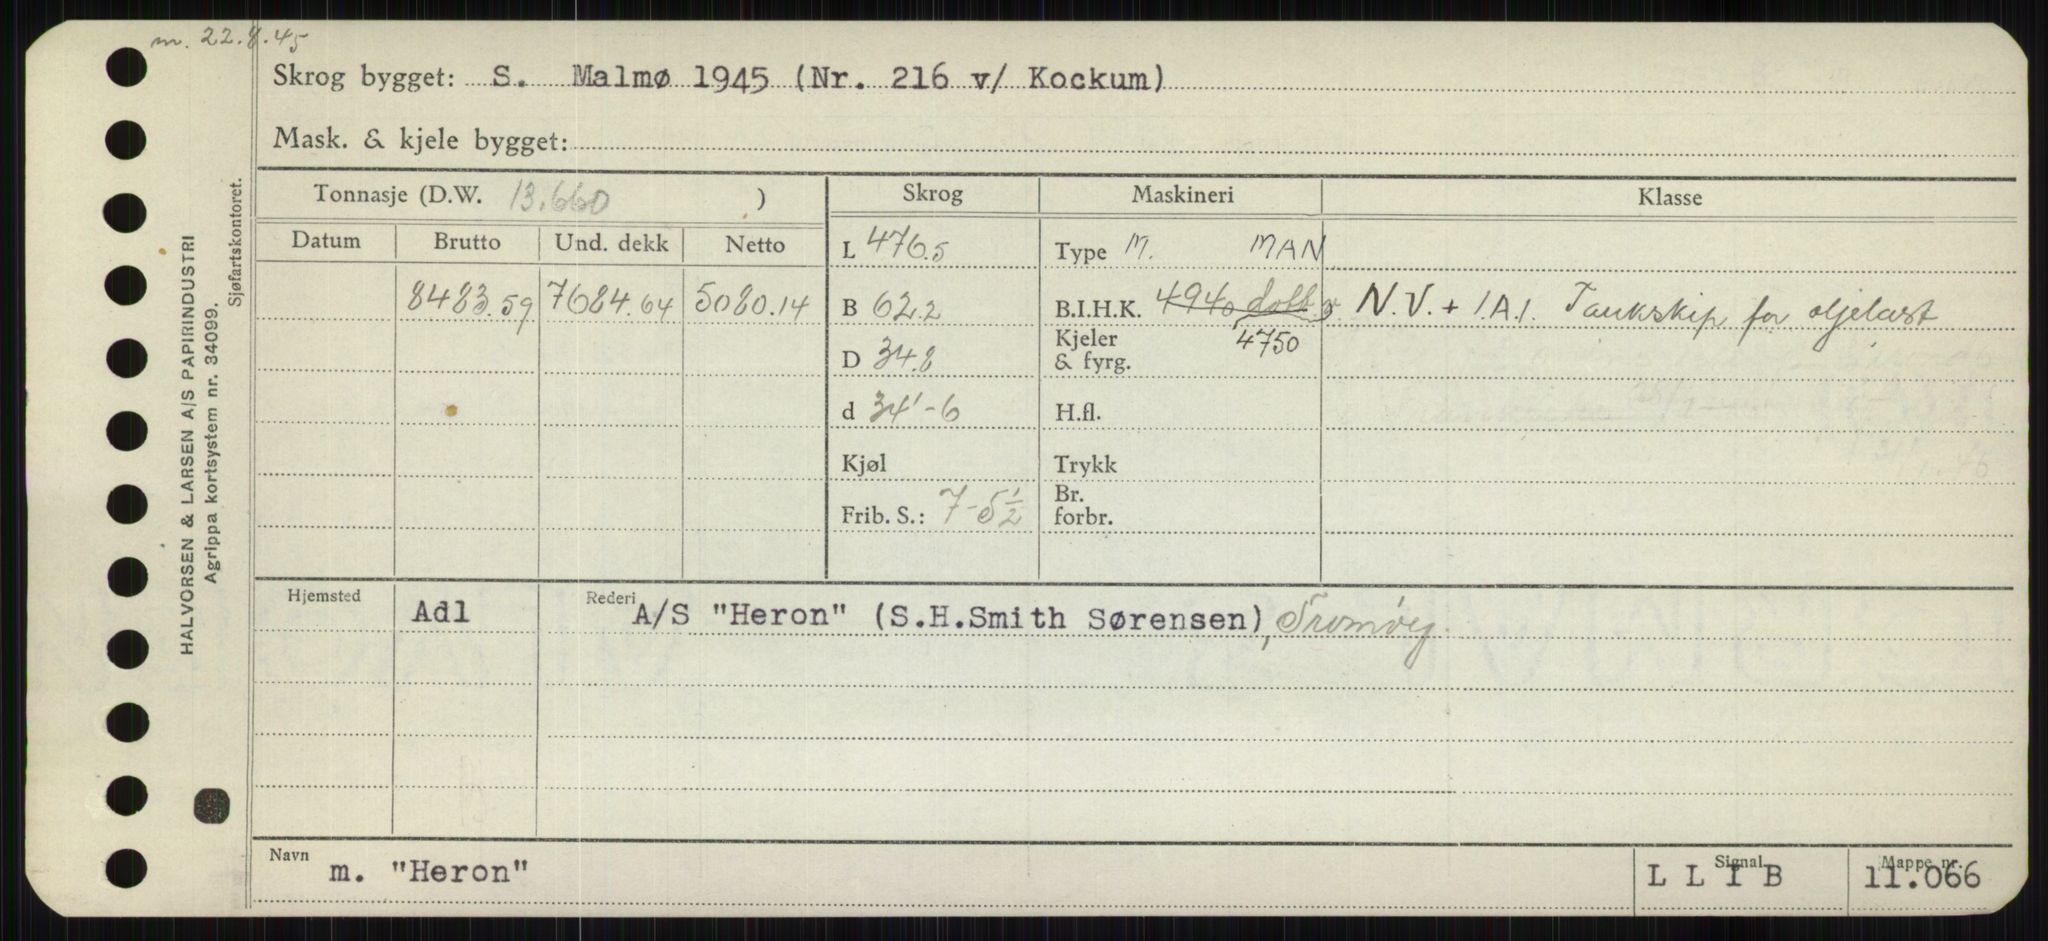 m. 22.8.45
Skrog bygget: S. Malmø 1945 (Nr. 216 v/ Kockum)
Mask. & kjele bygget:
HALVORSEN & LARSEN A/S PAPIRINDUSTRI
Agrippa kortsystem nr. 34099.
Sjøfartskontoret.
Tonnasje (D.W. 13.660 ) Skrog Maskineri Klasse
Datum Brutto Und. dekk Netto L 476.5 Type M. MAN
8483.59 7684.64 5080.14 B 62.2 B.I.H.K. 4940 dobb.v N.V. + 1A1. Tankskip for oljelast
D 34.8 Kjeler & fyrg. 4750
d 34'-6 H.fl.
Kjøl Trykk
Frib. S.: 7-5½ Br. forbr.
Hjemsted Adl Rederi A/S "Heron" (S.H.Smith Sørensen), Tromøy.
Navn m. "Heron" Signal L L I B Mappe nr. 11.066